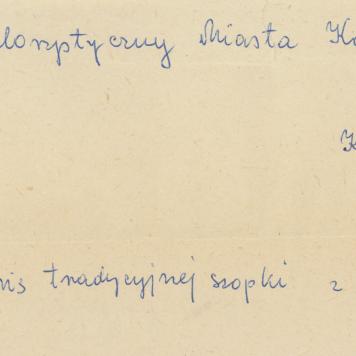 loszptyczny Miasta K
K
is tradycyjnej szopki z